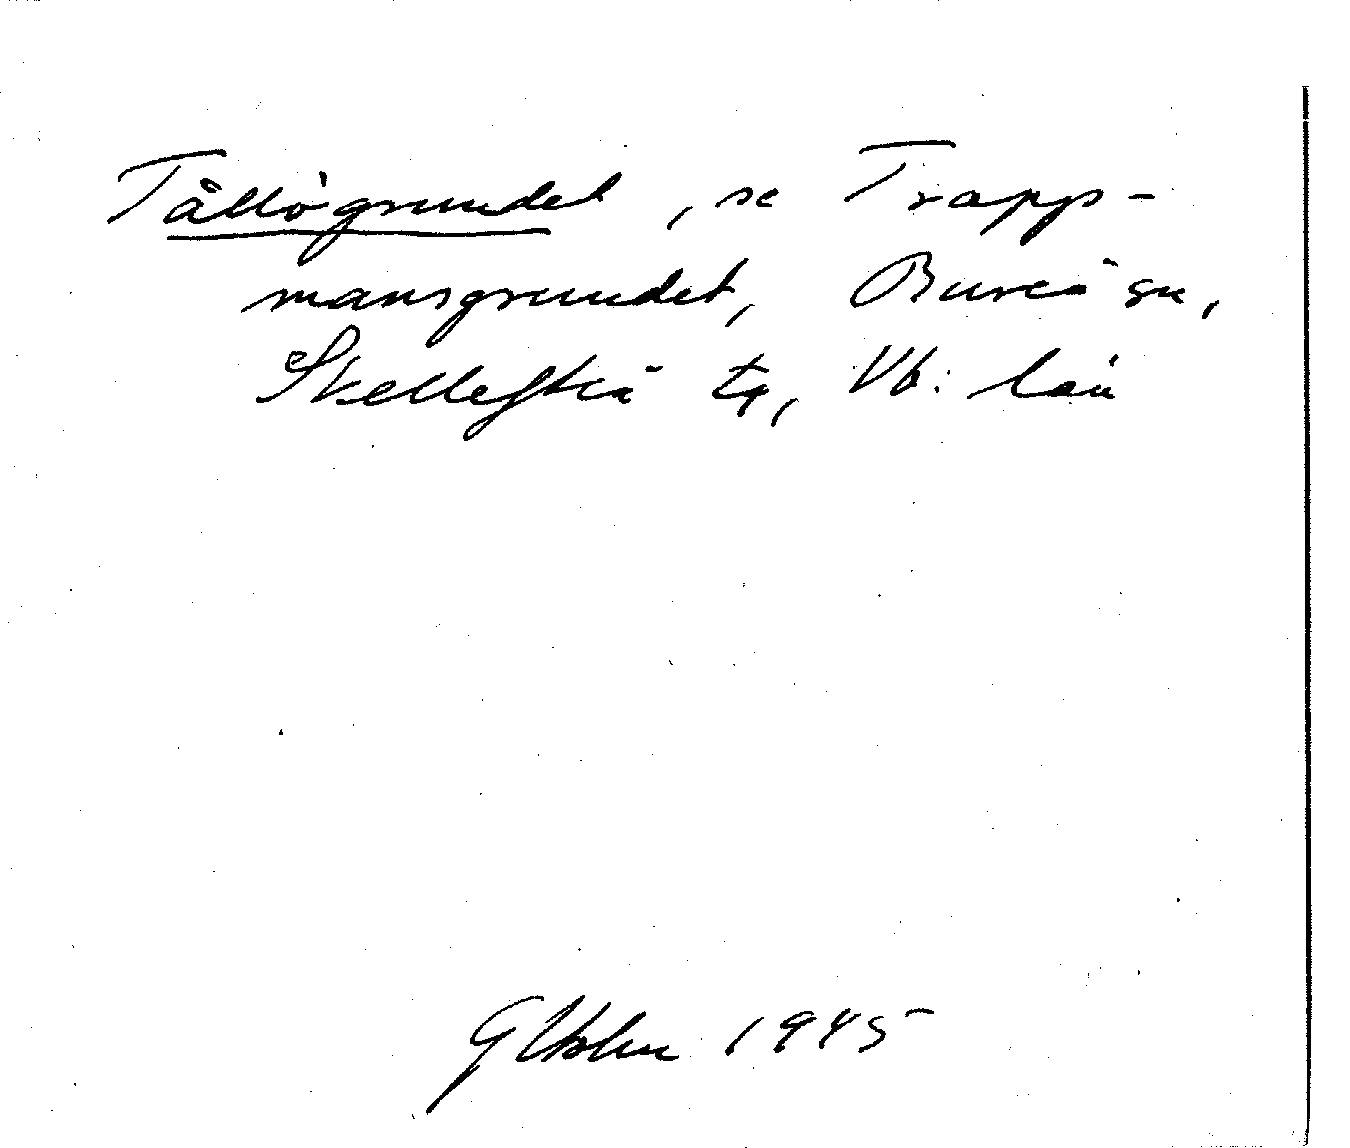 Tållögrundet, se Trapp-
mansgrundet, Bureå sn,
Skellefteå tg, Vb: län
G Holm 1945